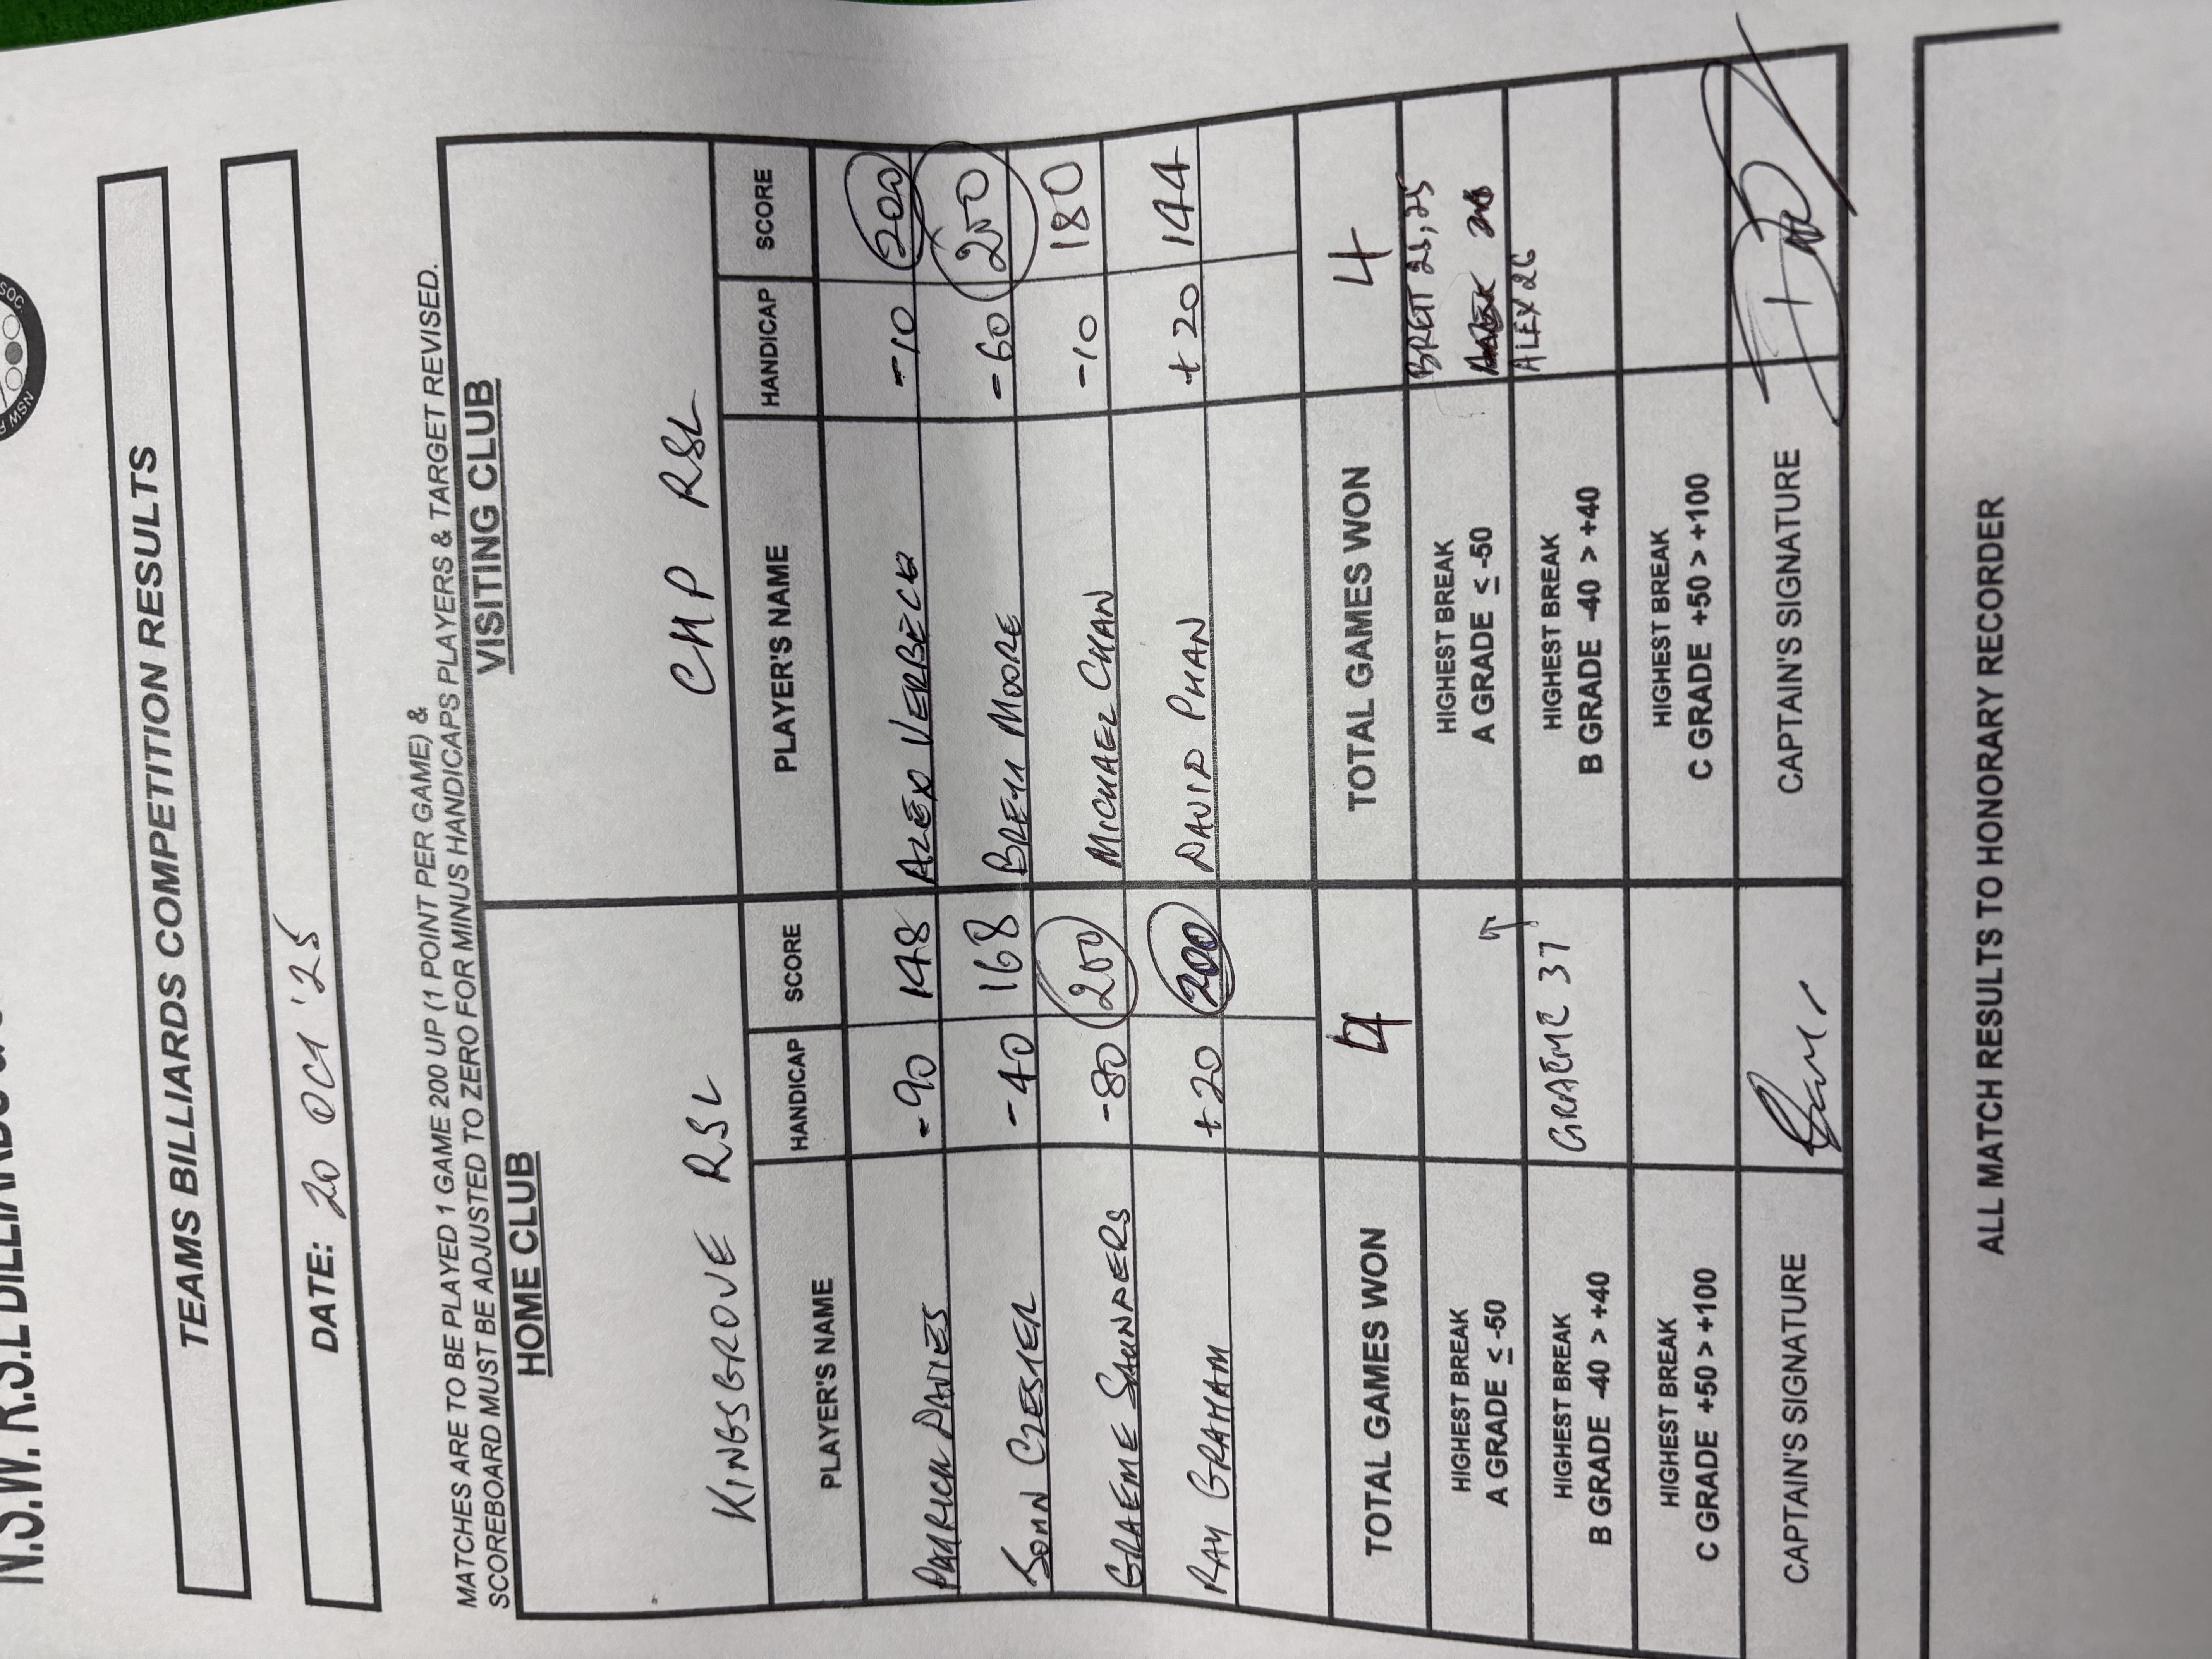 TEAMS BILLIARDS COMPETITION RESULTS
DATE: 20 OCT '25
MATCHES ARE TO BE PLAYED 1 GAME 200 UP (1 POINT PER GAME) &
SCOREBOARD MUST BE ADJUSTED TO ZERO FOR MINUS HANDICAPS PLAYERS & TARGET REVISED.
HOME CLUB VISITING CLUB
KINGSGROVE RSL CHP RSL
PLAYER'S NAME HANDICAP SCORE PLAYER'S NAME HANDICAP SCORE
PATRICK DAVIES -90 148 ALEX VERBECK -10 200
JOHN -40 168 BRETT MOORE -60 200
GRAEME SAUNDERS -80 200 MICHAEL CHAN -10 180
RAY GRAHAM +20 200 DAVID PHAN +20 144
TOTAL GAMES WON 4 TOTAL GAMES WON 4
HIGHEST BREAK
A GRADE ≤ -50
HIGHEST BREAK
A GRADE ≤ -50
BRETT 25, 25
HIGHEST BREAK
B GRADE -40 > +40
GRAEME 37
HIGHEST BREAK
B GRADE -40 > +40
ALEX 26
HIGHEST BREAK
C GRADE +50 > +100
HIGHEST BREAK
C GRADE +50 > +100
CAPTAIN'S SIGNATURE CAPTAIN'S SIGNATURE
ALL MATCH RESULTS TO HONORARY RECORDER